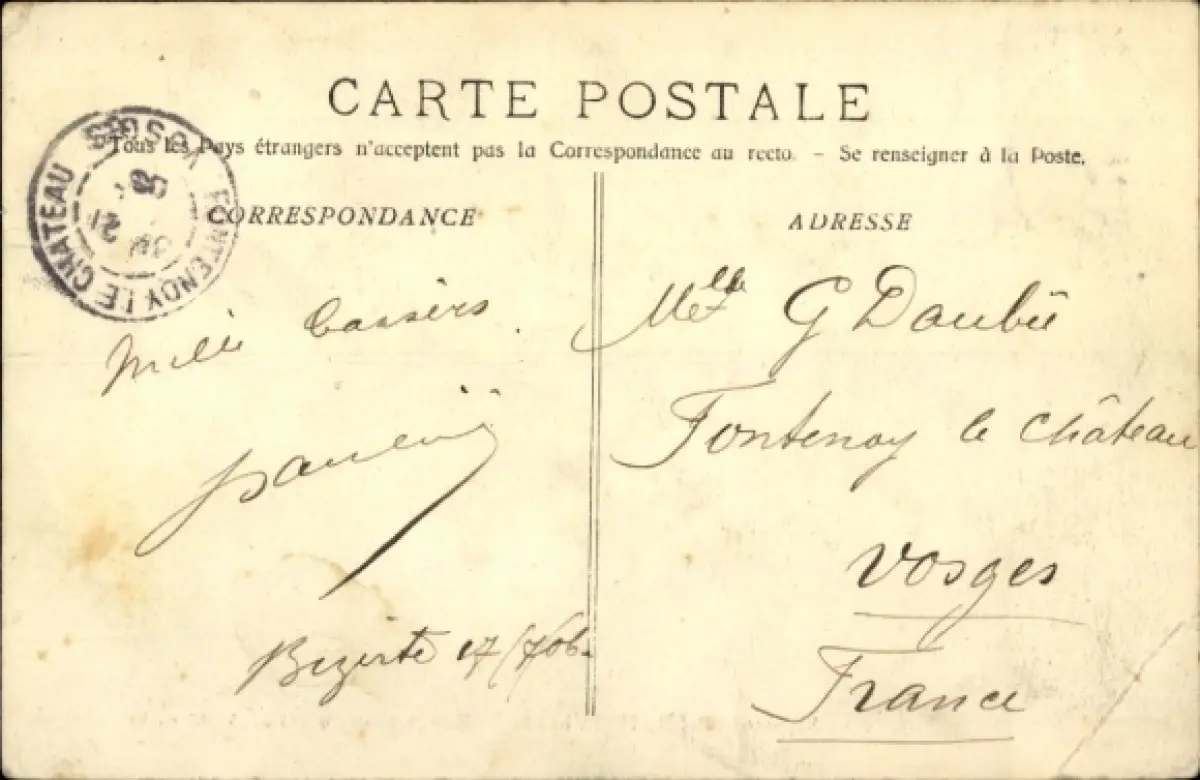 CARTE POSTALE
Tous les Pays étrangers n'acceptent pas la Correspondance au recto. – Se renseigner à la Poste.
CORRESPONDANCE
ADRESSE
FONTENOY LE CHATEAU VOSGES
21
Mille Baisers
Bizerte 17/7 06
Melle G Daubié
Fontenoy le Château
Vosges
France